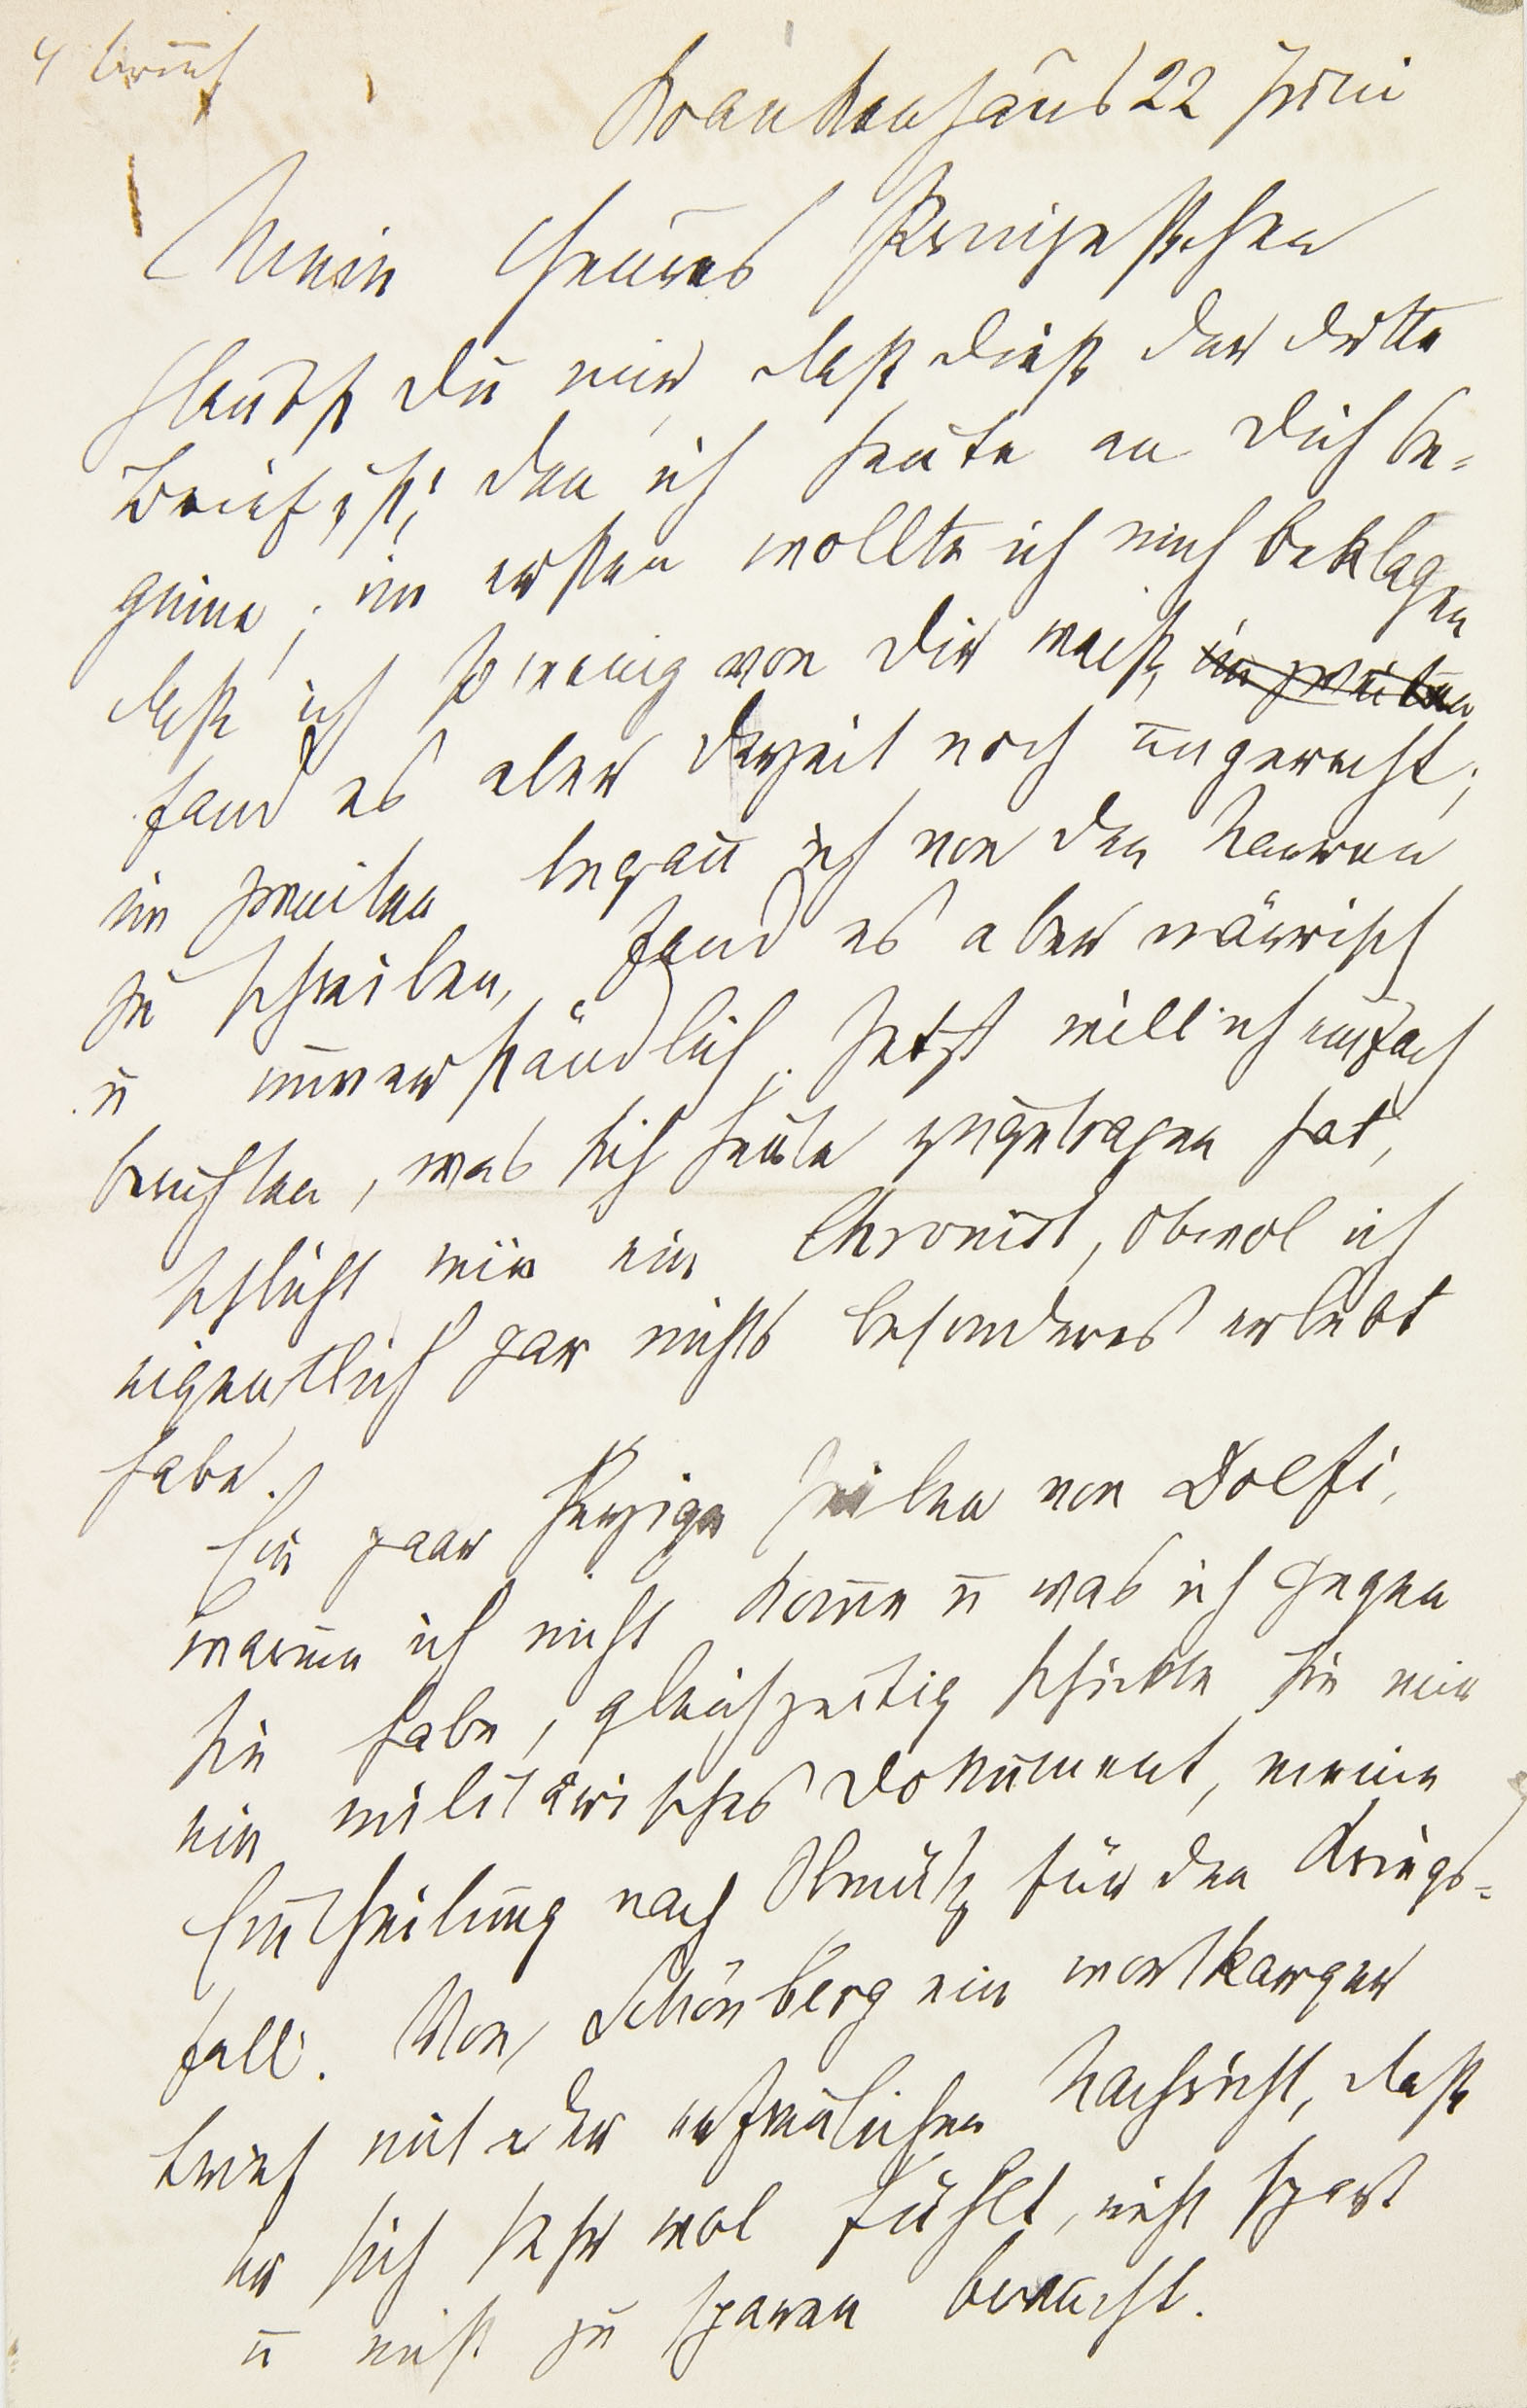 4 Brief
Krankenhaus 22 Juni
Mein theures Prinzesschen
Glaubst Du mir, daß dieß der dritte
Brief ist, den ich heute an Dich be-
ginne; im ersten wollte ich mich beklagen
daß ich so wenig von Dir weiß, im zweiten
fand es aber derzeit noch ungerecht;
im zweiten begañ ich von den Narren
zu schreiben, fand es aber närrisch
u unverständlich. Jetzt will ich einfach
berichten, was sich heute zugetragen hat,
schlicht wie ein Chronist, obwol ich
eigentlich gar nichts besonderes erlebt
habe.
Ein paar herzige Zeilen von Dolfi,
warum ich nicht kom̄e u was ich gegen
sie habe, gleichzeitig schickte sie mir
ein militärisches Dokument, meine
Eintheilung nach Olmütz für den Kriegs-
fall. Von Schönberg ein wortkarger
Brief mit der erfreulichen Nachricht, daß
er sich sehr wol fühlt, nicht spart
u nicht zu sparen braucht.